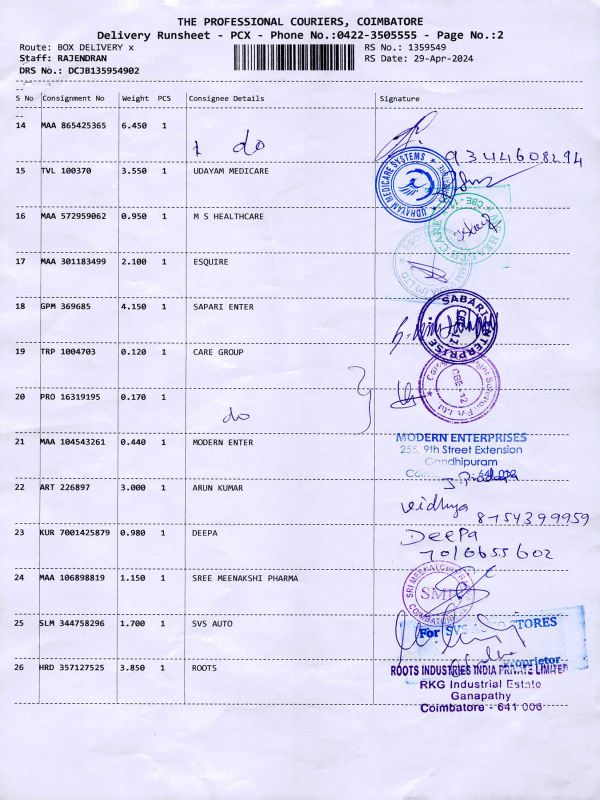 THE PROFESSIONAL COURIERS, COIMBATORE
Delivery Runsheet - PCX - Phone No.:0422-3505555 - Page No.:2
Route: BOX DELIVERY x
RS No.: 1359549
Staff: RAJENDRAN
RS Date: 29-Apr-2024
DRS No.: DCJB135954902
S No Consignment No Weight PCS Consignee Details Signature
14 MAA 865425365 6.450 1 do
9344608294
15 TVL 100370 3.550 1 UDAYAM MEDICARE
UDHAYAM MEDICARE SYSTEMS
16 MAA 572959062 0.950 1 M S HEALTHCARE
17 MAA 301183499 2.100 1 ESQUIRE
18 GPM 369685 4.150 1 SAPARI ENTER
SABARI ENTERPRISE
19 TRP 1004703 0.120 1 CARE GROUP
CBE-12
20 PRO 16319195 0.170 1 do
21 MAA 104543261 0.440 1 MODERN ENTER
MODERN ENTERPRISES
255, 9th Street Extension
Gandhipuram
22 ART 226897 3.000 1 ARUN KUMAR
vidhya
8754399959
23 KUR 7001425879 0.980 1 DEEPA
DeePa
7016655602
24 MAA 106898819 1.150 1 SREE MEENAKSHI PHARMA
25 SLM 344758296 1.700 1 SVS AUTO
For SVS AUTO STORES
Proprietor
26 HRD 357127525 3.850 1 ROOTS
ROOTS INDUSTRIES INDIA PRIVATE LIMITED
RKG Industrial Estate
Ganapathy
Coimbatore - 641 006